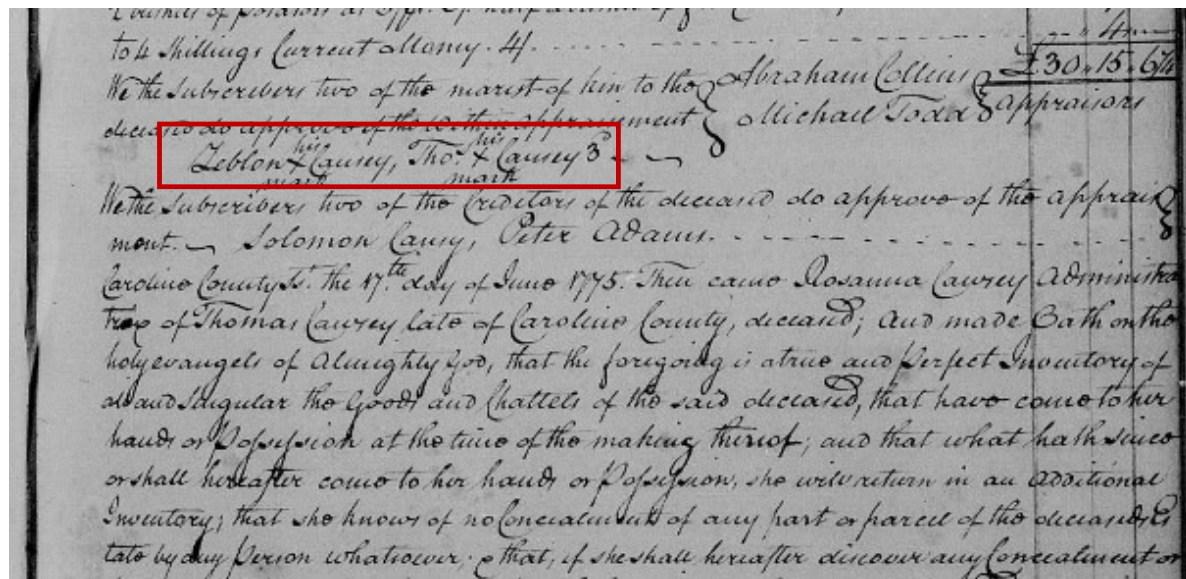 to 4 Shillings Current Money. 4/. 4
£30.. 15.. 6¼
We the Subscribers two of the nearest of kin to the Abraham Collins
deceased do approve of the within appraisement Michael Todd appraisors
his his
Zeblon X Causey, Thos. X Causey 3d
mark mark
We the Subscribers two of the Creditors of the deceased do approve of the apprais
ment. Solomon Causy, Peter Adams.
Caroline County Ss. the 17.th day of June 1775. Then came Rosanna Cawsey Administra
trex of Thomas Cawsey late of Caroline County, deceased; and made Oath on the
holy evangels of Almighty God, that the foregoing is a true and Perfect Inventory of
all and Singular the Goods and Chattels of the said deceased, that have come to her
hands or Possession at the time of the making thereof; and that what hath since
or shall hereafter come to her hands or Possession, she will return in an additional
Inventory; that she knows of no Concealment of any part or parcel of the deceaseds Es
tate by any Person whatsoever. & that, if she shall hereafter discover any Concealment or